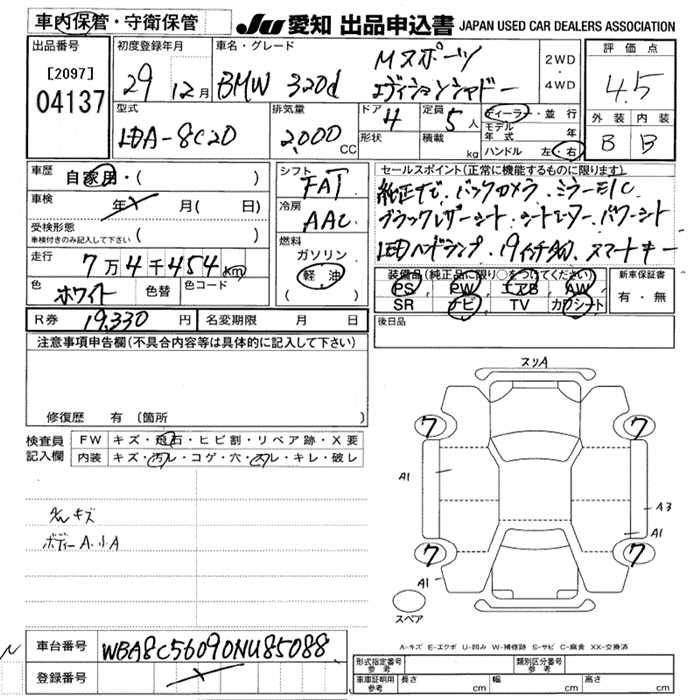 車内保管・守衛保管
JU 愛知 出品申込書 JAPAN USED CAR DEALERS ASSOCIATION
出品番号 初度登録年月 車名・グレード 評価点
[2097] 29 12月 BMW 320d Mスポーツ 2WD・4WD 4.5
04137 エディションシャドー
型式 排気量 ドア 4 定員 5人 ディーラー・並行 外装 内装
LDA-8C20 2,000 CC 形状 積載 kg モデル年式 年 B B
ハンドル 左・右
車歴 自家用・( ) シフト FAT セールスポイント(正常に機能するものに限ります)
車検 年 X 月( 日) 冷房 AAC 純正ナビ.バックカメラ.ミラーEtC
受検形態 車検付きのみ記入して下さい ・( ) ブラックレザーシート.シートヒーター.パワーシート
走行 7万4千454km 燃料 ガソリン 軽油 LEDヘッドランプ.19インチAW.スマートキー
色 ホワイト 色替 色コード 装備品(純正品に限り○をつけてください) 新車保証書
PS PW エアB AW 有・無
SR ナビ TV カワシート
R券 19,330円 名変期限 月 日 後日品
注意事項申告欄(不具合内容等は具体的に記入して下さい)
修復歴 有 (箇所 )
検査員記入欄 FW キズ・飛石・ヒビ割・リペア跡・X要
内装 キズ・汚レ・コゲ・穴・スレ・キレ・破レ
キズ
ボディーA.小A
スリA
7 7
A1
A3
A1
7 7
A1
スペア
A-キズ E-エクボ U-凹み W-補修跡 S-サビ C-腐食 XX-交換済
N 車台番号 WBA8C56090NU85088
登録番号 X
形式指定番号 参考 類別区分番号 参考
車庫証明用 参考 長さ cm 幅 cm 高さ cm